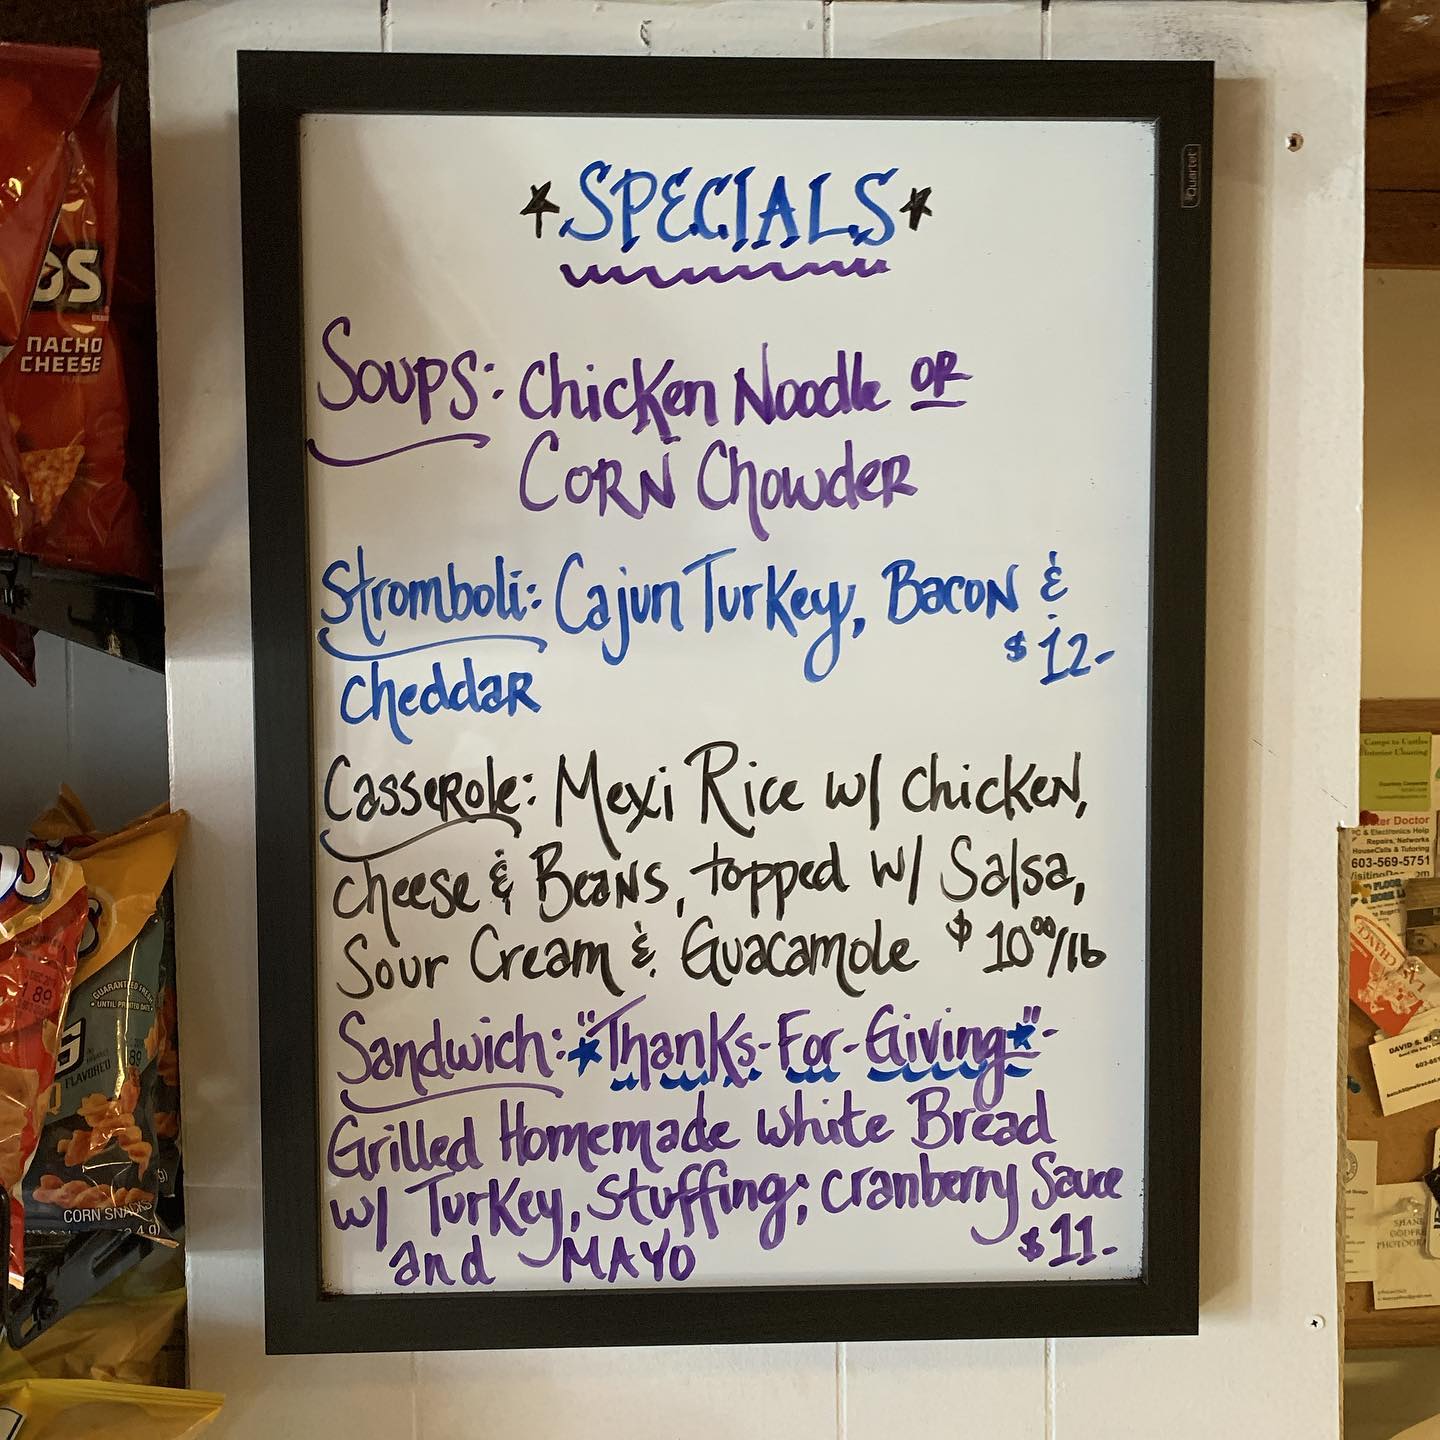 *SPECIALS*
Soups: Chicken Noodle OR
Corn Chowder
Stromboli: Cajun Turkey, Bacon &
$12-
Cheddar
Casserole: Mexi Rice w/ chicken,
cheese & Beans, topped w/ Salsa,
Sour Cream & Guacamole $10.00/lb
Sandwich: *"Thanks-For-Giving*"-
Grilled Homemade white Bread
w/ Turkey, Stuffing; cranberry Sauce
and MAYO $11-
Quartet
OS
NACHO
CHEESE
GUARANTEED FRESH
UNTIL PRINTED DATE
FLAVORED
CORN SNACKS
89
Repairs, Networks
HouseCalls & Tutoring
603-569-5751